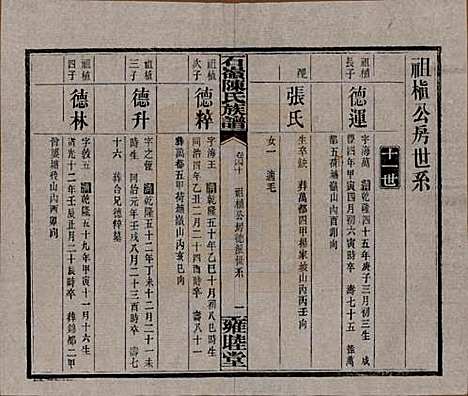 祖槙公房世系
十一世
祖槙長子
德運
字海萬 乾隆四十五年庚子三月初三生 咸
豐四年甲寅四月初六寅時卒 壽七十五 葬萬
都五甲荷塘嶺山內酉卯向
配
張氏
生卒缺 葬萬都四甲楊家坡山內丙壬向
女一 適毛
石嶺陳氏族譜
祖槙公房德派世系
一
雍睦堂
祖槙次子
德粹
字海王 乾隆五十年乙巳十月初八戌時生
同治四年乙丑二月二十四酉時卒 壽八十一
葬萬都五甲荷塘嶺山內亥巳向
祖槙三子
德升
字之恆 乾隆五十二年丁未十二月二十一未
時生 同治元年壬戌八月二十三酉時卒 壽七
十六 葬合兄德粹墓
祖槙四子
德林
字敘五 乾隆五十九年甲寅十一月十六生
光緒 二年 正月二十辰時卒 葬錦都二甲
山內酉卯向